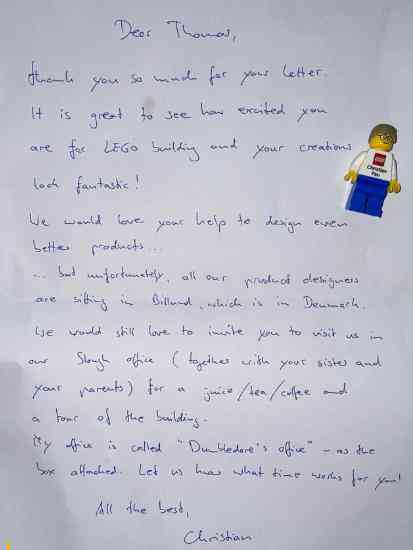 Dear Thomas,
thank you so much for your letter.
It is great to see how excited you
are for LEGO building and your creations
look fantastic!
We would love your help to design even
better products...
... but unfortunately, all our product designers
are sitting in Billund, which is in Denmark.
We would still love to invite you to visit us in
our Slough office (together with your sister and
your parents) for a juice/tea/coffee and
a tour of the building.
My office is called "Dumbledore's office" - as the
box attached. Let us know what time works for you!
All the best,
Christian
LEGO
Christian
Pau